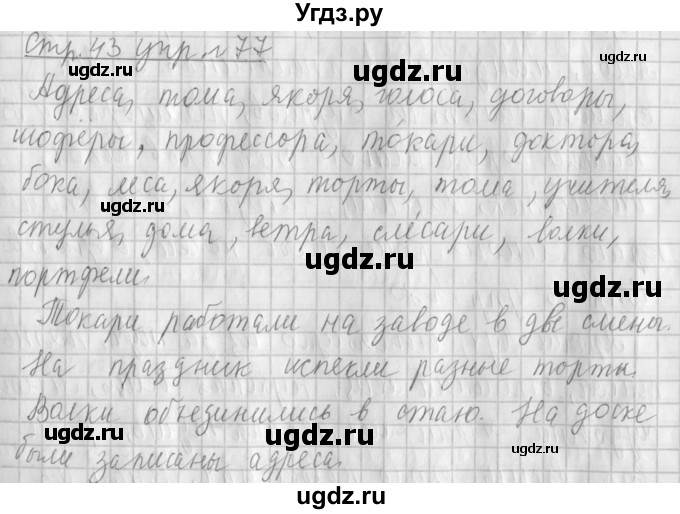 Угдз.ру
Стр. 43 упр № 77
ugdz.ru
ugdz.ru
Адреса, тома, якоря, голоса, договоры,
ugdz.ru
шофёры, профессора, то́кари, доктора,
ugdz.ru
бока, леса, якоря, торты, тома, учителя,
ugdz.ru
стулья, дома, ветра, сле́сари, волки,
ugdz.ru
портфели.
ugdz.ru
Токари работали на заводе в две смены.
ugdz.ru
На праздник испекли разные торты.
Волки объединились в стаю. На доске
ugdz.ru
ugdz.ru
ugdz.ru
были записаны адреса.
ugdz.ru